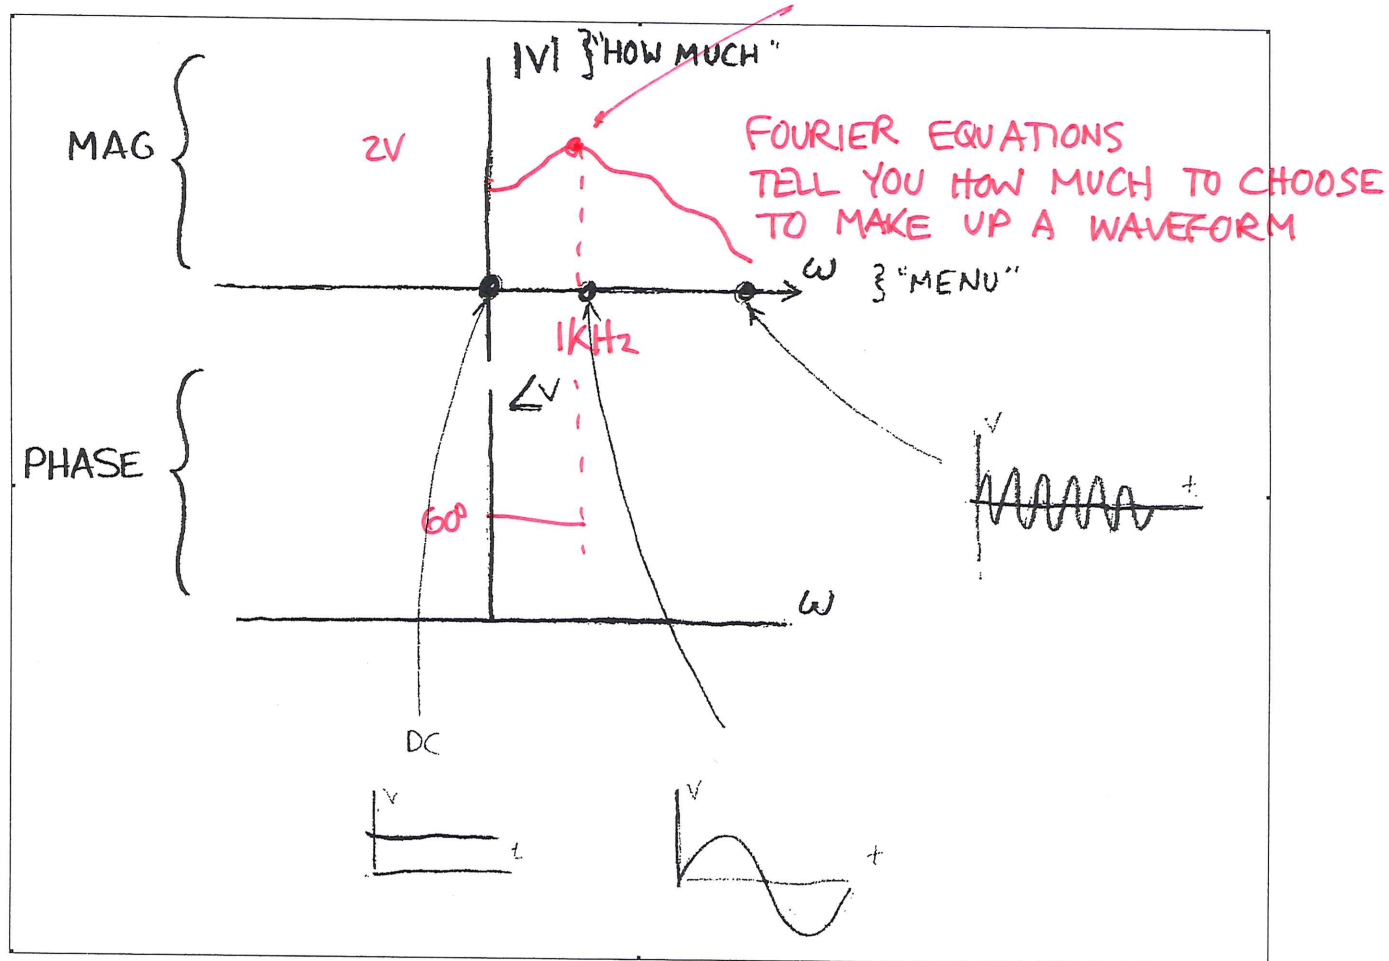 |V| } "HOW MUCH"
MAG {
2V
FOURIER EQUATIONS
TELL YOU HOW MUCH TO CHOOSE
TO MAKE UP A WAVEFORM
ω } "MENU"
1KHz
∠V
PHASE {
60°
ω
V
t
DC
V
t
V
t